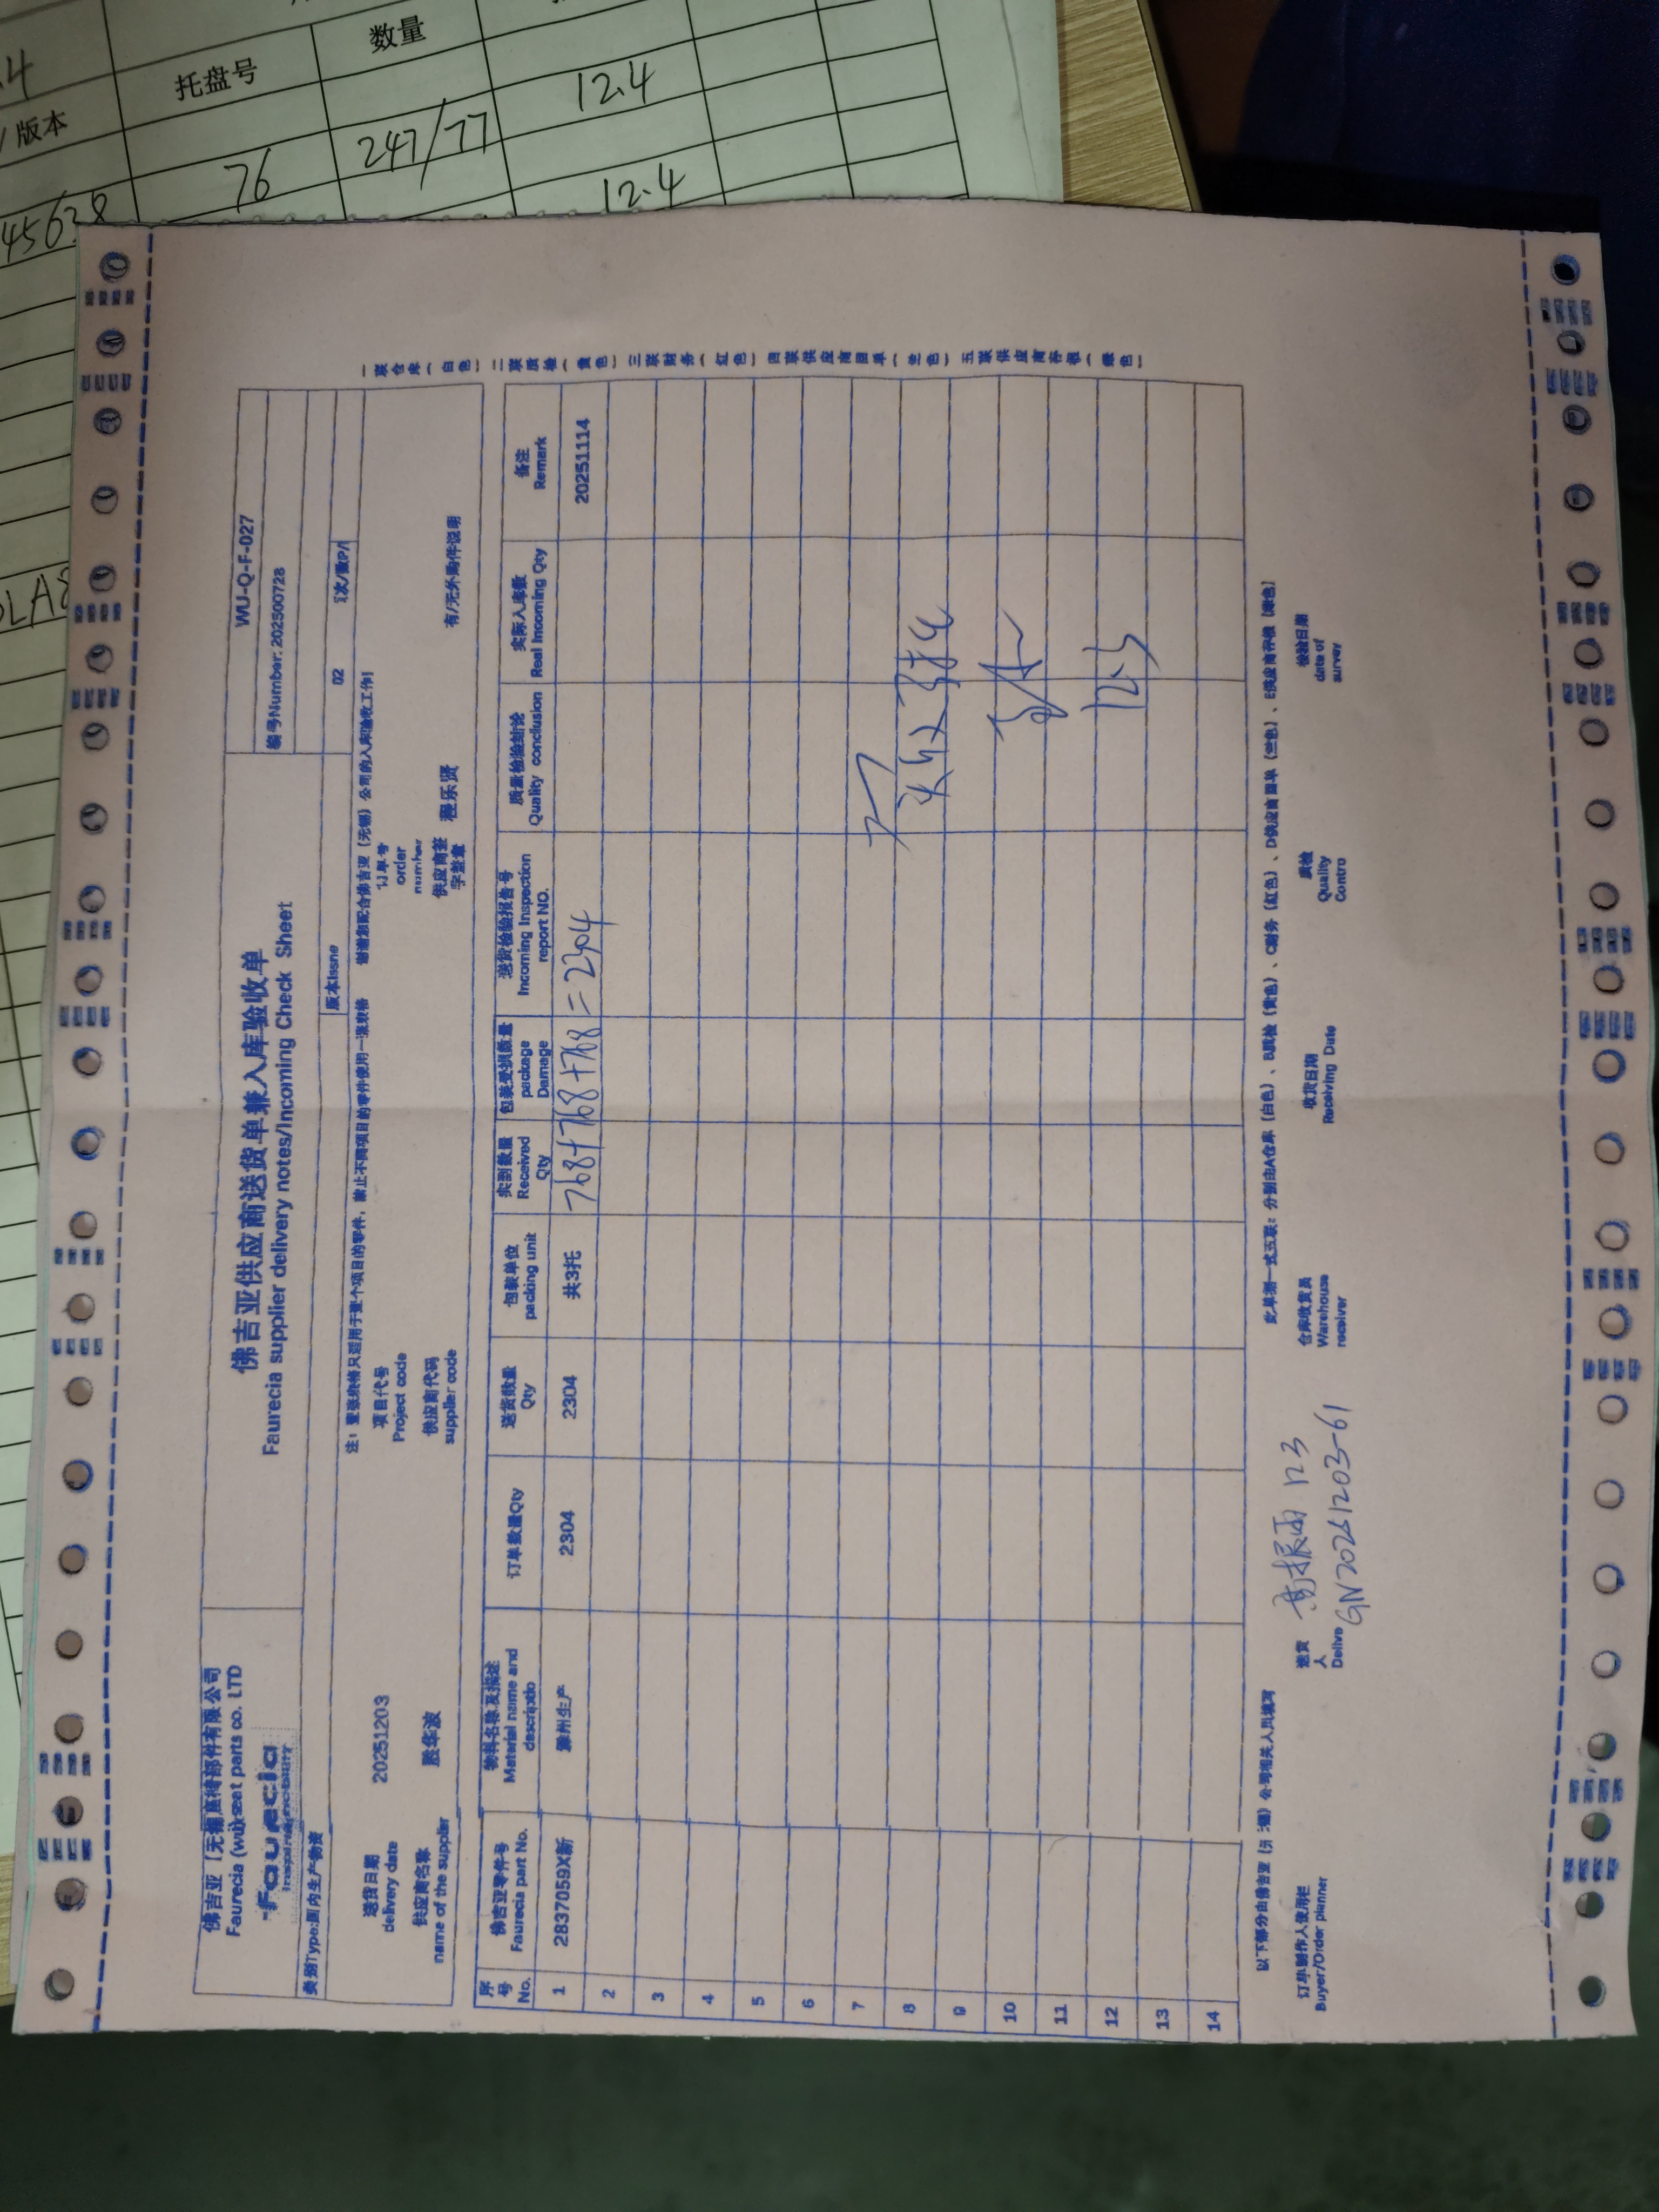 数量
托盘号
/ 版本
12.4
247/77
76
12.4
45638
佛吉亚（无锡）座椅部件有限公司
Faurecia (wuxi) seat parts co. LTD
faurecia
佛吉亚供应商送货单兼入库验收单
Faurecia supplier delivery notes/Incoming Check Sheet
WU-Q-F-027
编号Number: 202500728
类别Type:国内生产物资
版本Issne
02
注：壹张表格只适用于壹个项目的零件，禁止不同项目的零件使用一张表格
谢谢您配合佛吉亚（无锡）公司的入库验收工作！
送货日期
delivery date
20251203
项目代号
Project code
订单号
order
number
供应商名称
name of the supplier
胜华波
供应商代码
supplier code
供应商签
字盖章
程乐贤
有/无外购件说明
序号 No.
佛吉亚零件号 Faurecia part No.
物料名称及描述 Material name and descriptio
订单数量Qty
送货数量 Qty
包装单位 packing unit
实到数量 Received Qty
包装受损数量 package Damage
送货检验报告号 Incoming Inspection report NO.
质量检验结论 Quality conclusion
实际入库数 Real Incoming Qty
备注 Remark
1 2837059X新 滁州生产 2304 2304 共3托 768+768+768=2304 20251114
2
3
4
5
6
7
8
9
10
11
12
13
14
12.3
一联仓库（白色） 二联质检（黄色） 三联财务（红色） 四联供应商回单（兰色） 五联供应商存根（绿色）
此单据一式五联：分别由A仓库（白色）、B质检（黄色）、C财务（红色）、D供应商回单（兰色）、E供应商存根（绿色）
订单制作人使用栏
Buyer/Order planner
送货
人
Delive
12.3
GN20251203-61
仓库收货员
Warehouse
receiver
收货日期
Receiving Date
质检
Quality
Contro
检验日期
date of
survey